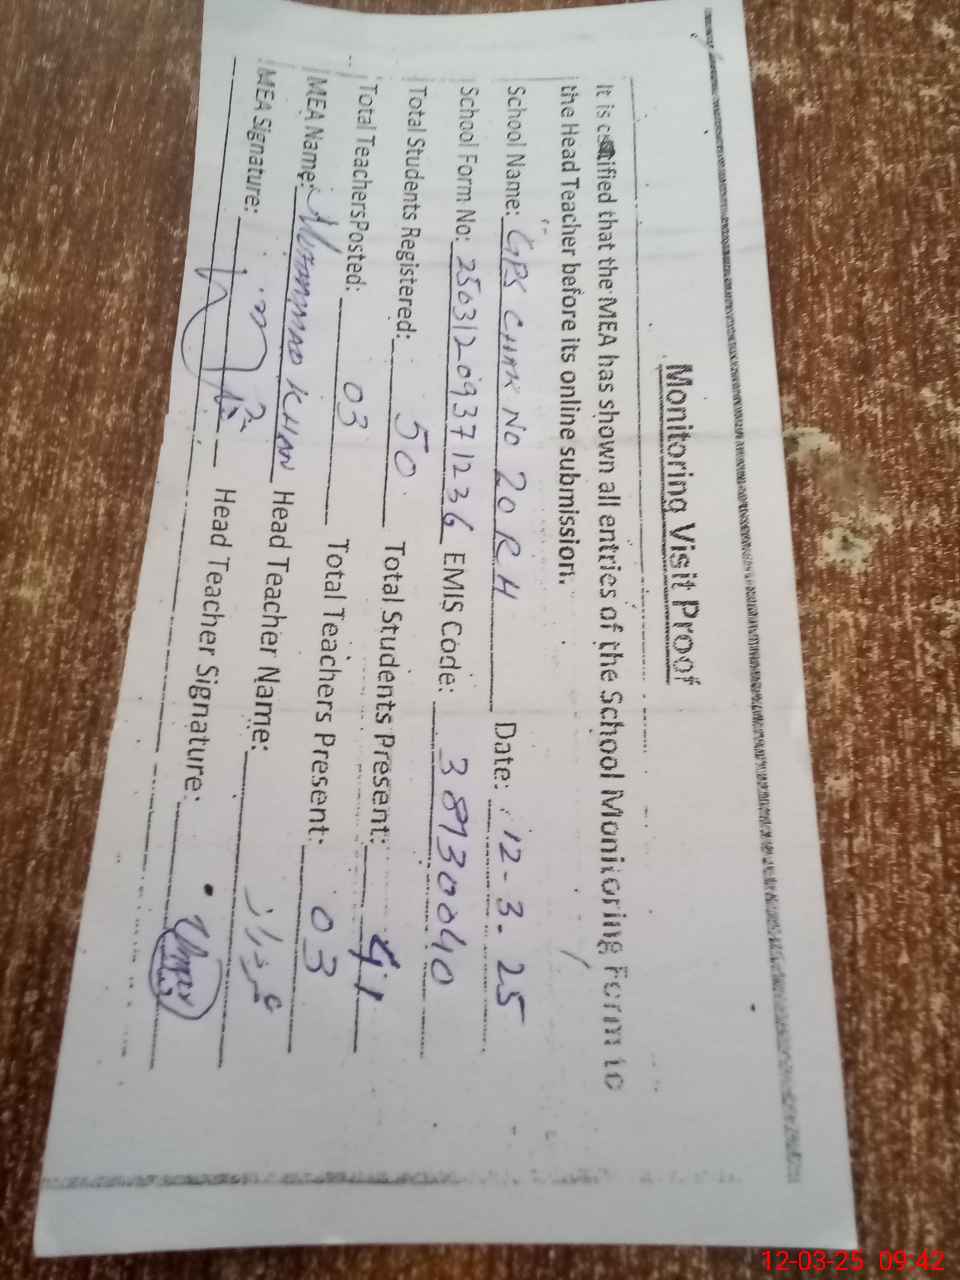 Monitoring Visit Proof
It is certified that the MEA has shown all entries of the School Monitoring Form to
the Head Teacher before its online submission.
School Name: GPS CHAK NO 20 R H Date: 12-3-25
School Form No: 25031209371236 EMIS Code: 38130040
Total Students Registered: 50 Total Students Present: 41
Total Teachers Posted: 03 Total Teachers Present: 03
MEA Name: MUHAMMAD KHAN Head Teacher Name:
MEA Signature: Head Teacher Signature: Umar
12-03-25 09:42